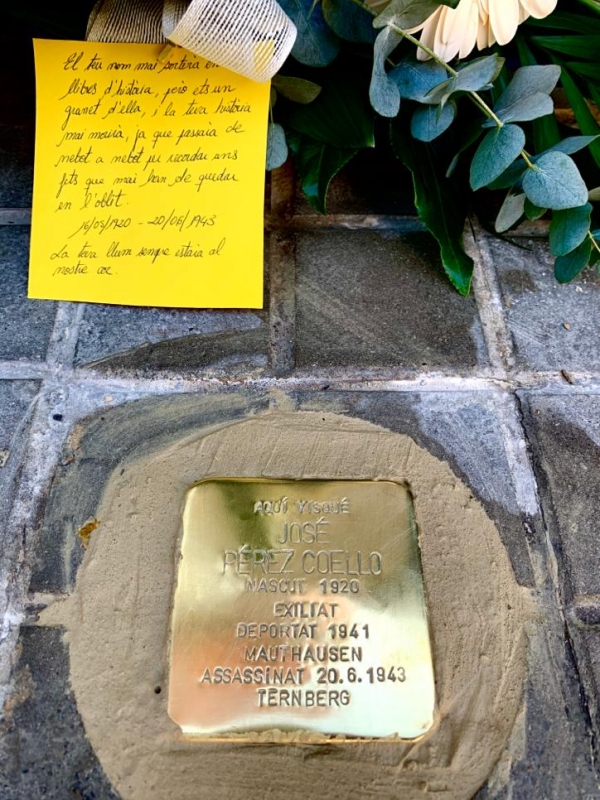 El teu nom mai sortirà en
llibres d'història, però ets un
granet d'ella, i la teva història
mai morirà, ja que passarà de
nebot a nebot per recordar uns
fets que mai han de quedar
en l'oblit.
16/05/1920 - 20/06/1943
La teva llum sempre estarà al
nostre cor.
AQUÍ VISQUÉ
JOSÉ
PÉREZ COELLO
NASCUT 1920
EXILIAT
DEPORTAT 1941
MAUTHAUSEN
ASSASSINAT 20.6.1943
TERNBERG